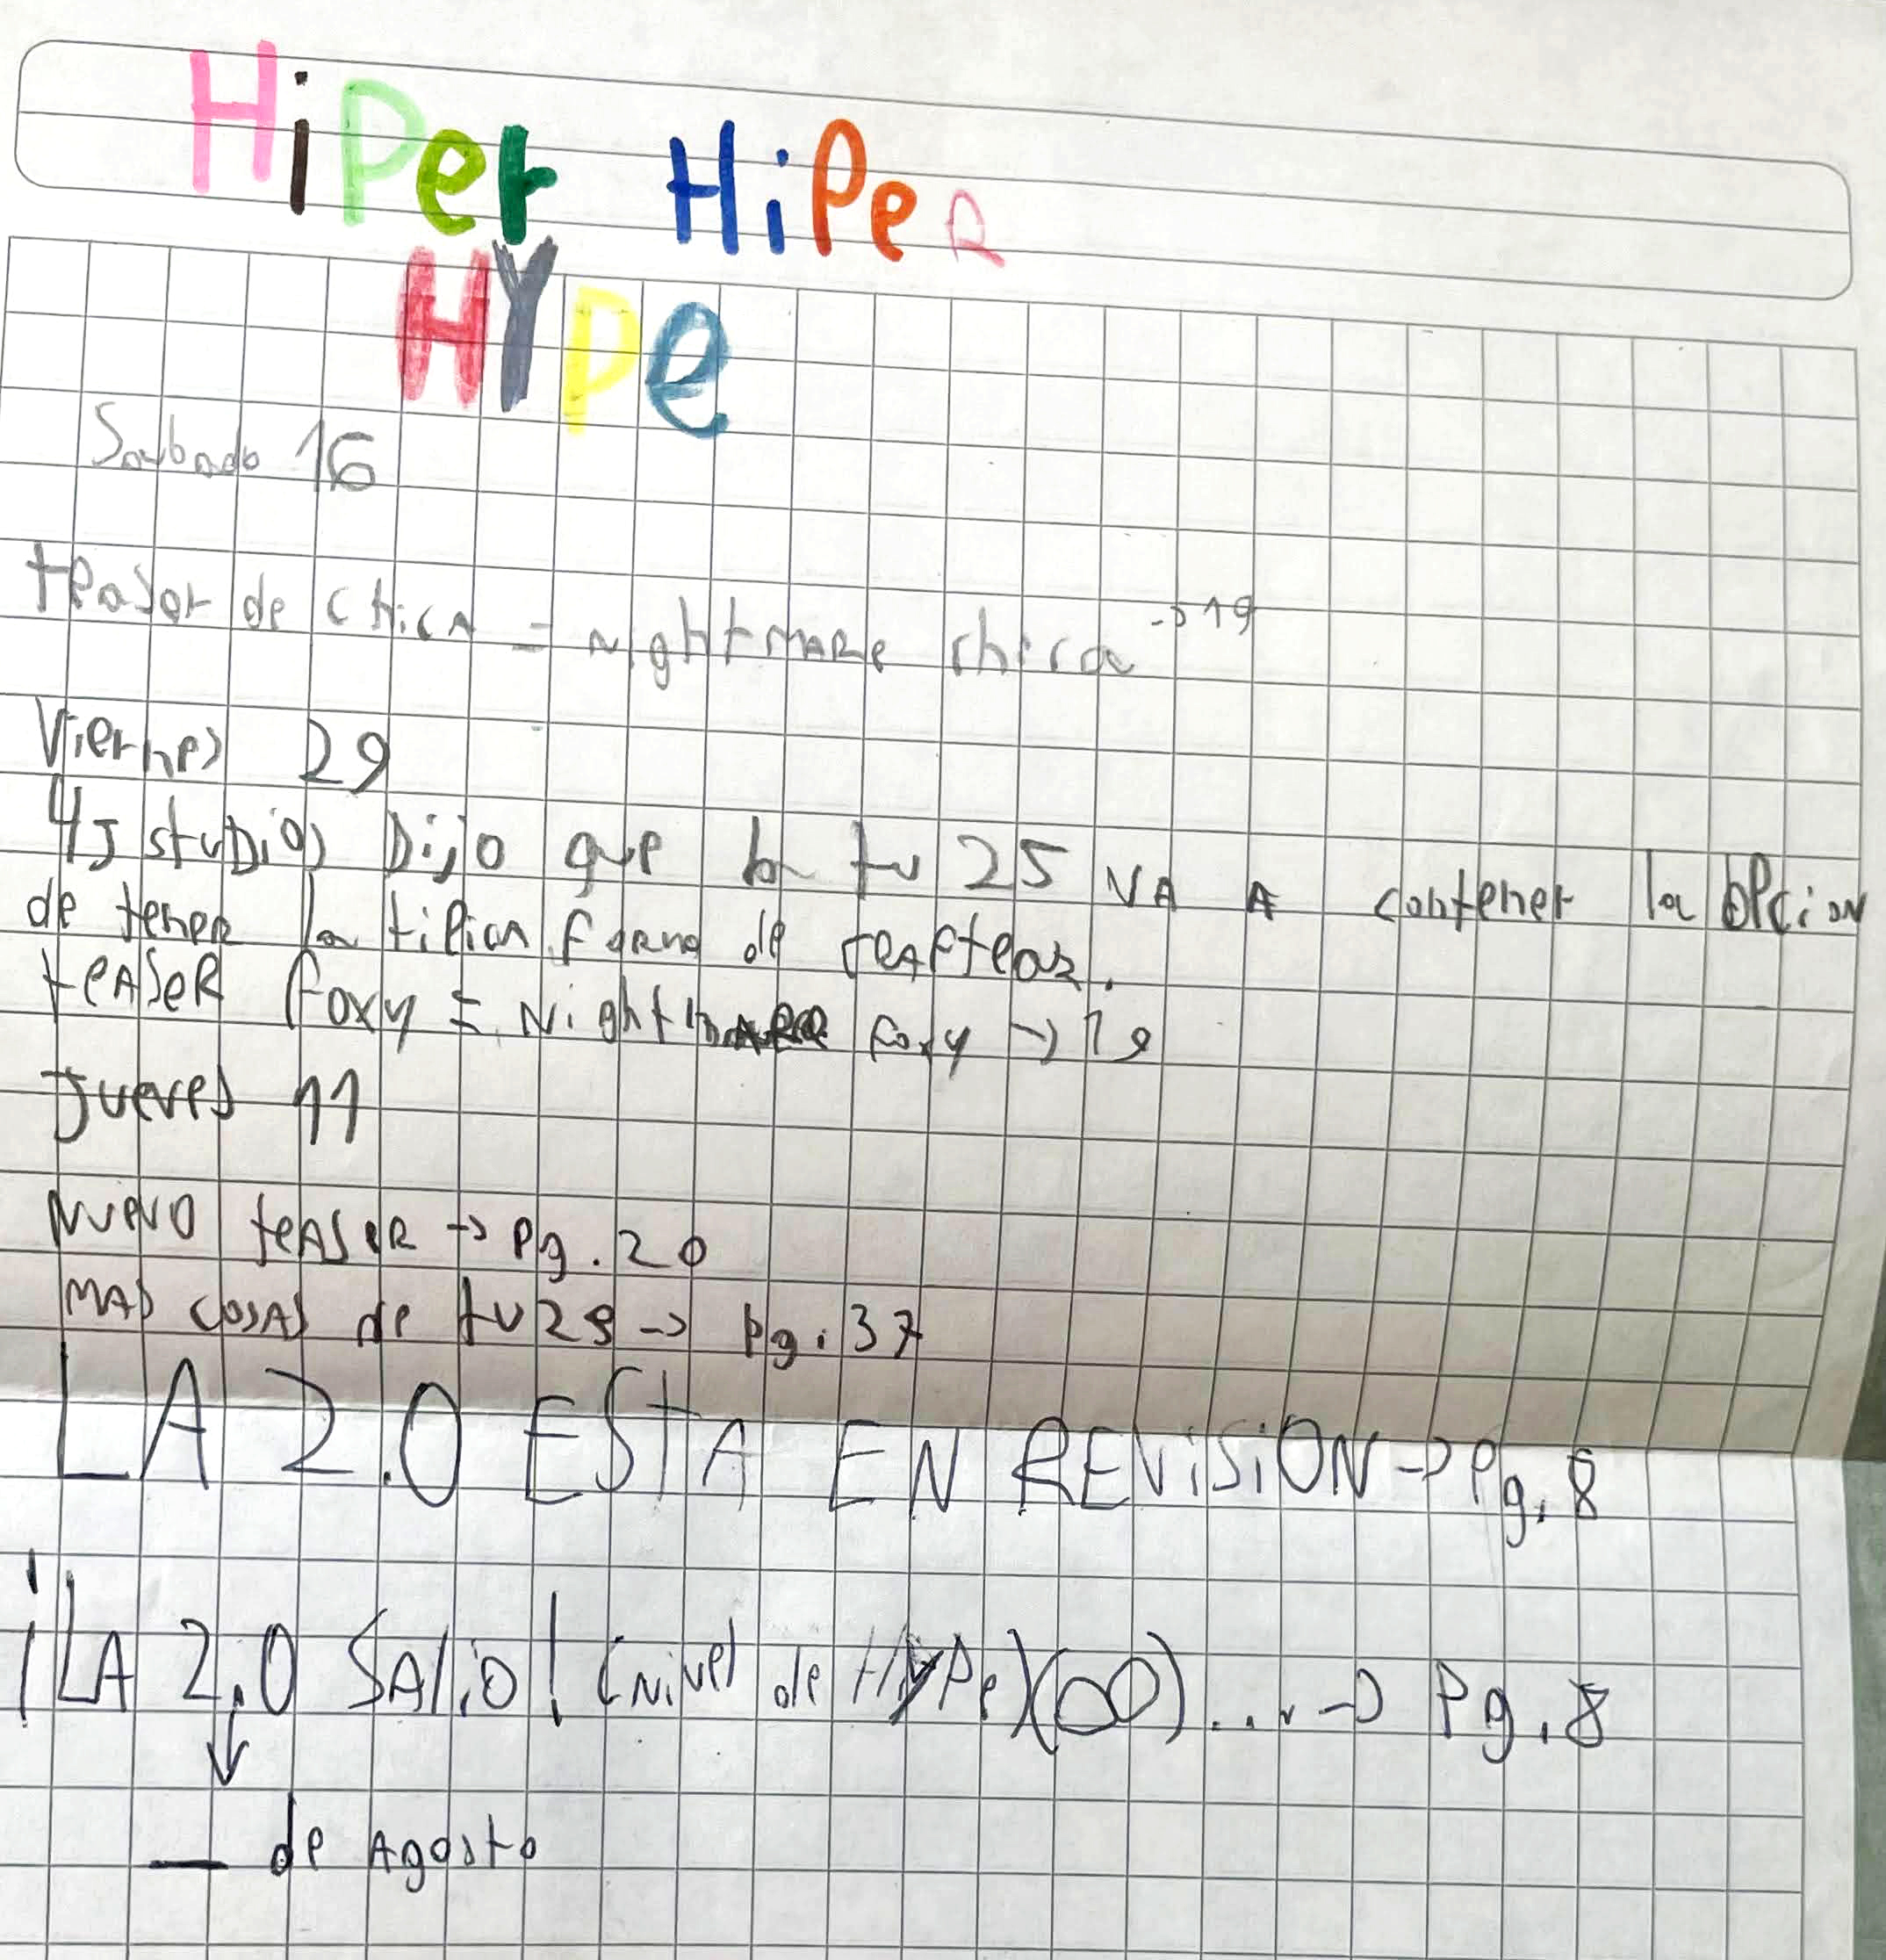 HiPer HiPeR
HYpe
Saubado 16
teasor de chicA = NightMARe chica -> 19
Viernes 29
4J studios Dijo que la tu 25 VA A contener la OPcion
de teneR la tipica forma de craftear.
teAseR foxy = Nightmare foxy -> 19
Jueves 11
NUevo teAseR -> Pg. 20
MAs cosAs de tu 25 -> pg. 37
LA 2.0 ESTA EN REViSiON -> Pg. 8
¡LA 2.0 SAliO! (Nivel de HYPe)(∞)... -> Pg. 8
↓
— de Agosto